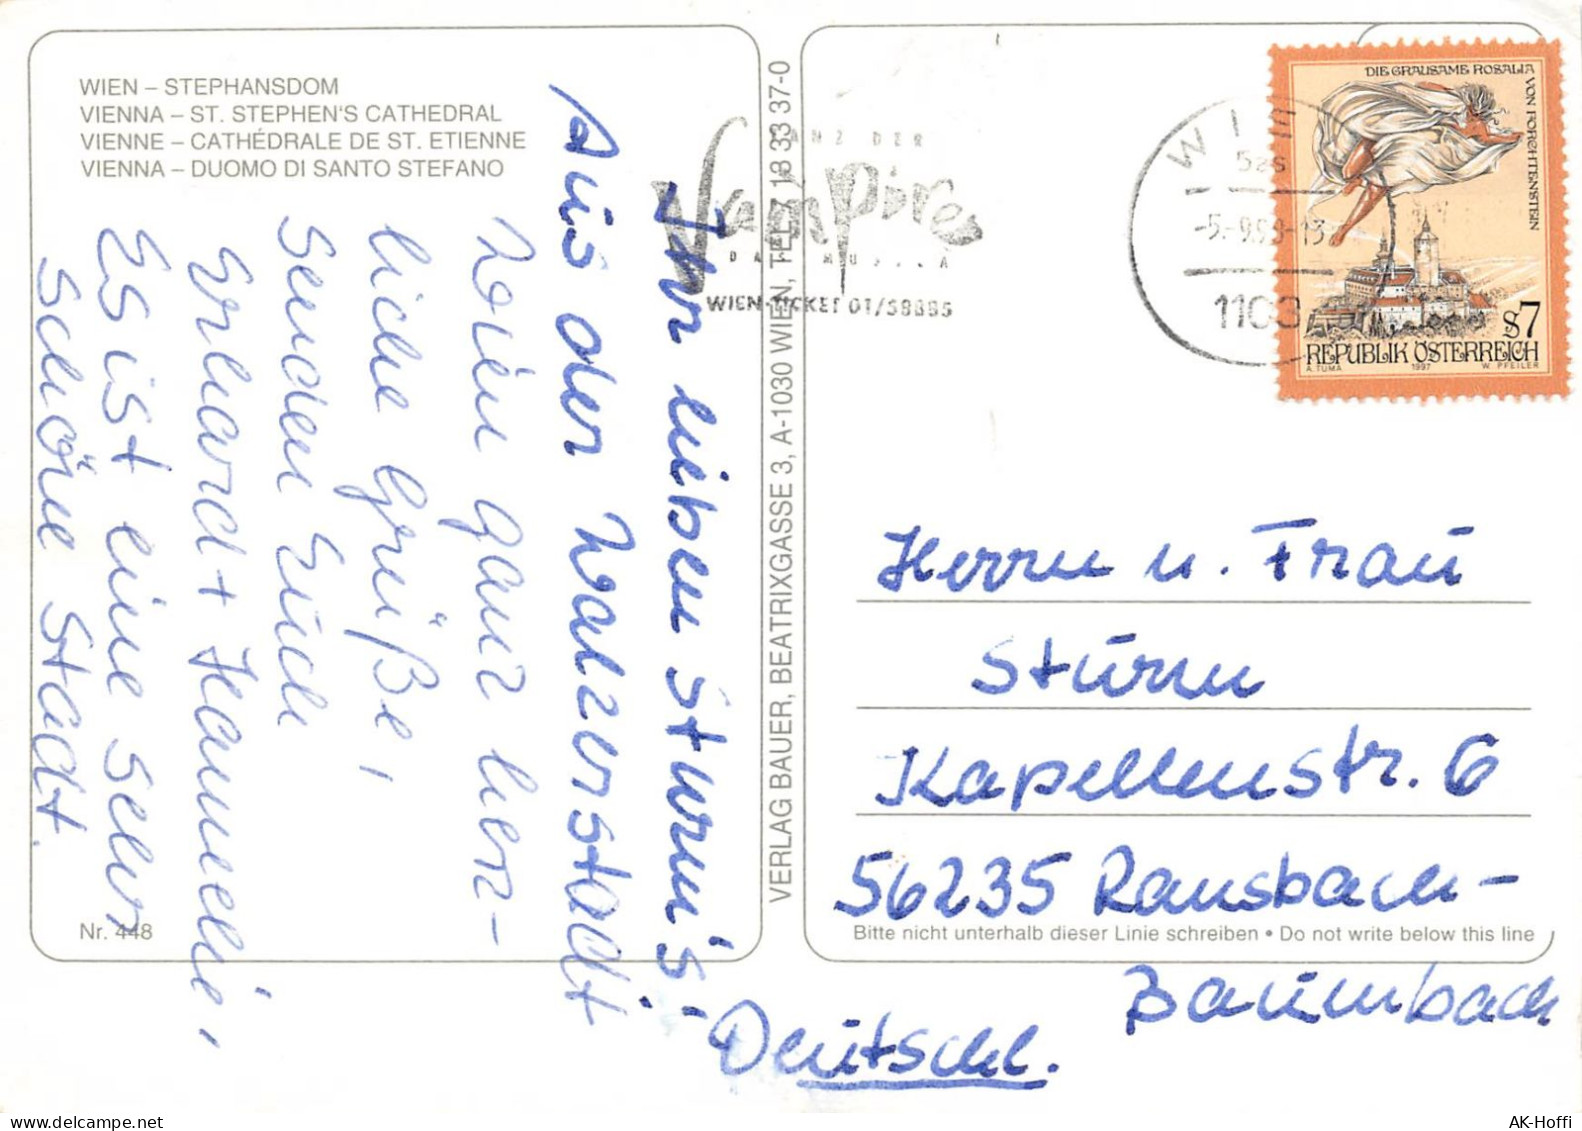 WIEN – STEPHANSDOM
VIENNA – ST. STEPHEN'S CATHEDRAL
VIENNE – CATHÉDRALE DE ST. ETIENNE
VIENNA – DUOMO DI SANTO STEFANO
Ihr lieben Sturm's!
Aus der Walzerstadt
Wien ganz herz-
liche Grüße,
senden Euch
Erhard + Hannelie,
Es ist eine sehr
schöne Stadt.
Nr. 448
VERLAG BAUER, BEATRIXGASSE 3, A-1030 WIEN, TEL. 713 33 37-0
TANZ DER
Vampire
DAS MUSICAL
WIEN-TICKET 01/58885
WIEN
-5.-9.98-13
1103
DIE GRAUSAME ROSALIA
VON FORCHTENSTEIN
S7
REPUBLIK ÖSTERREICH
A. TUMA 1997 W. PFEILER
Herrn u. Frau
Sturm
Kapellenstr. 6
56235 Ransbach-
Bitte nicht unterhalb dieser Linie schreiben • Do not write below this line
Baumbach
Deutschl.
AK-Hoffi